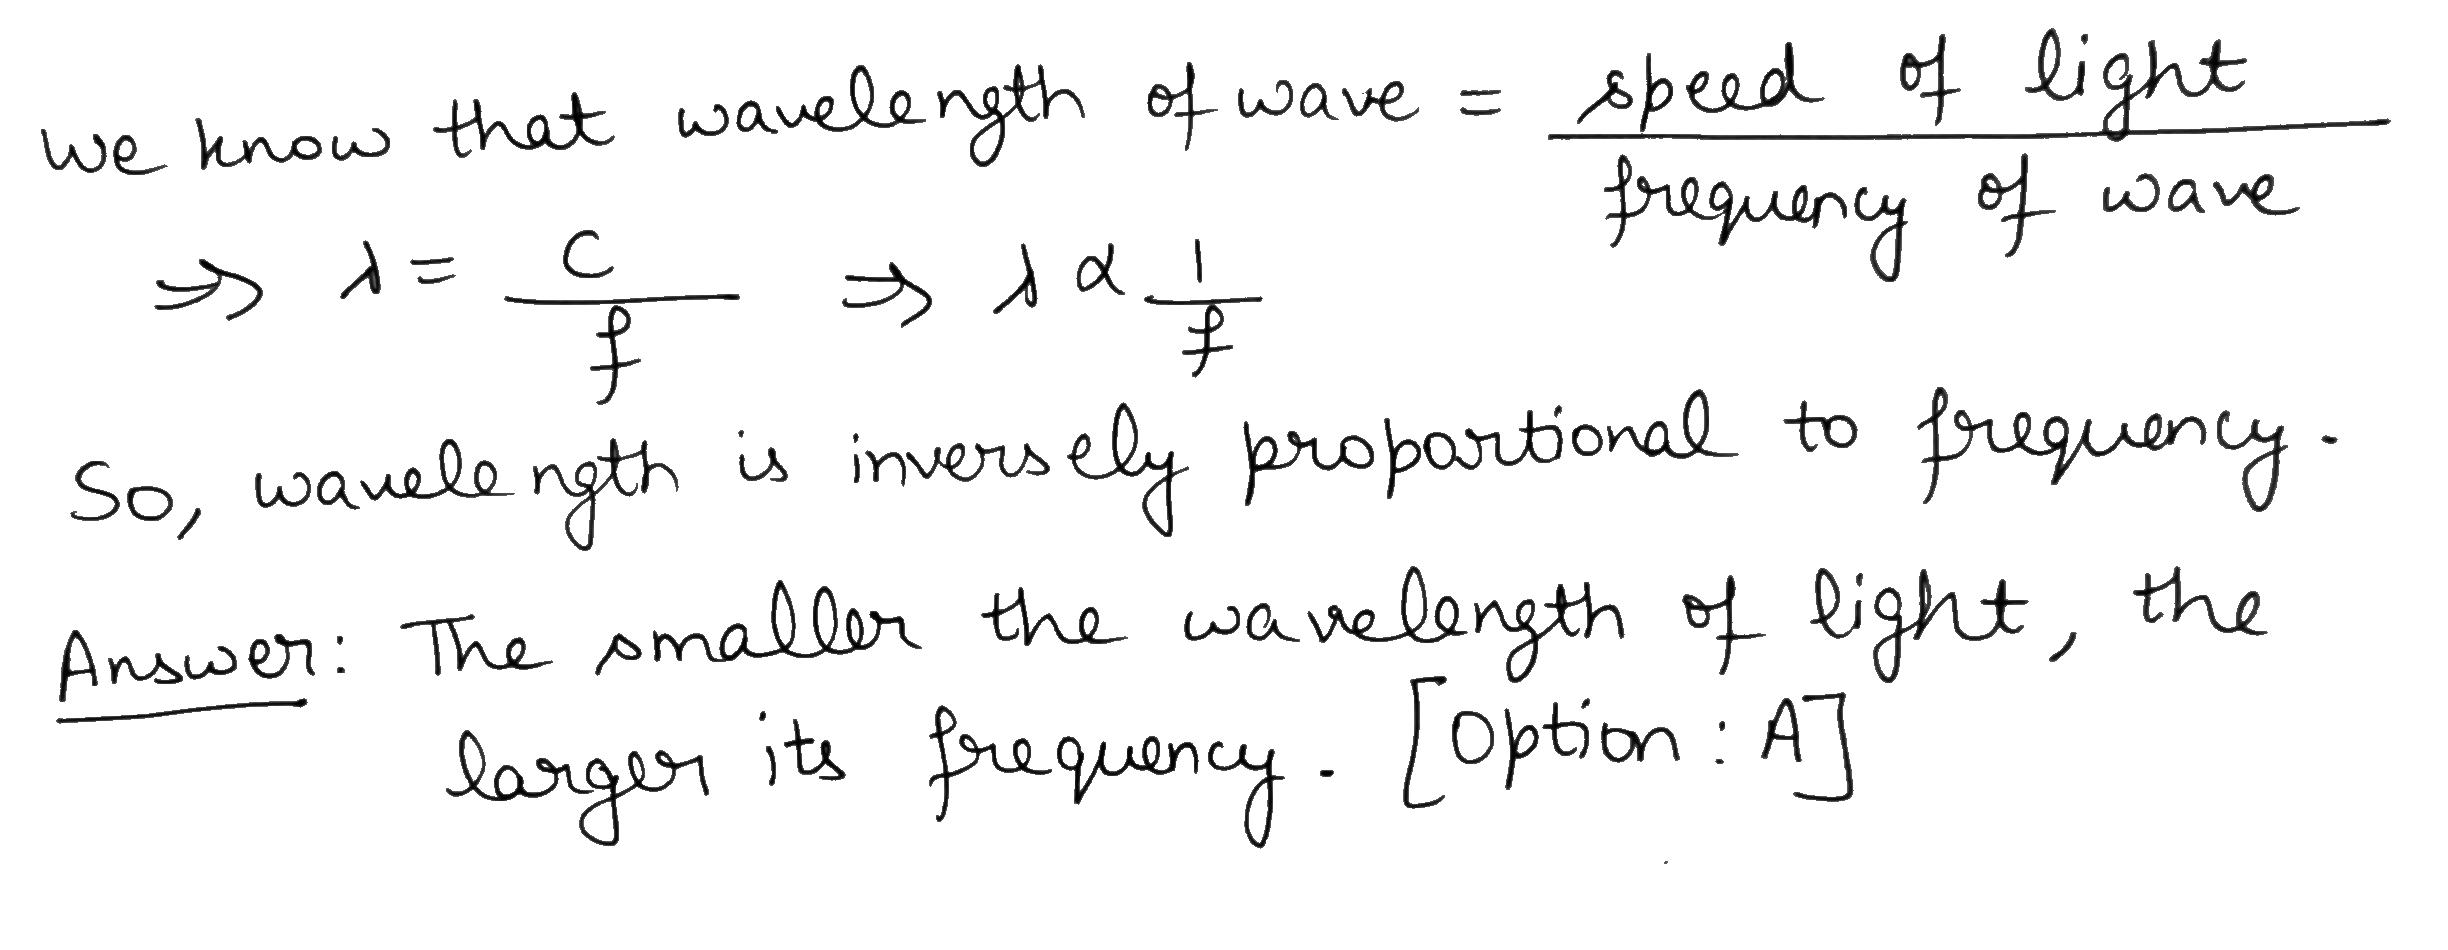 We know that wavelength of wave = speed of light / frequency of wave
⇒ λ = c / f ⇒ λ α 1 / f
So, wavelength is inversely proportional to frequency.
Answer: The smaller the wavelength of light, the
larger its frequency. [Option : A]